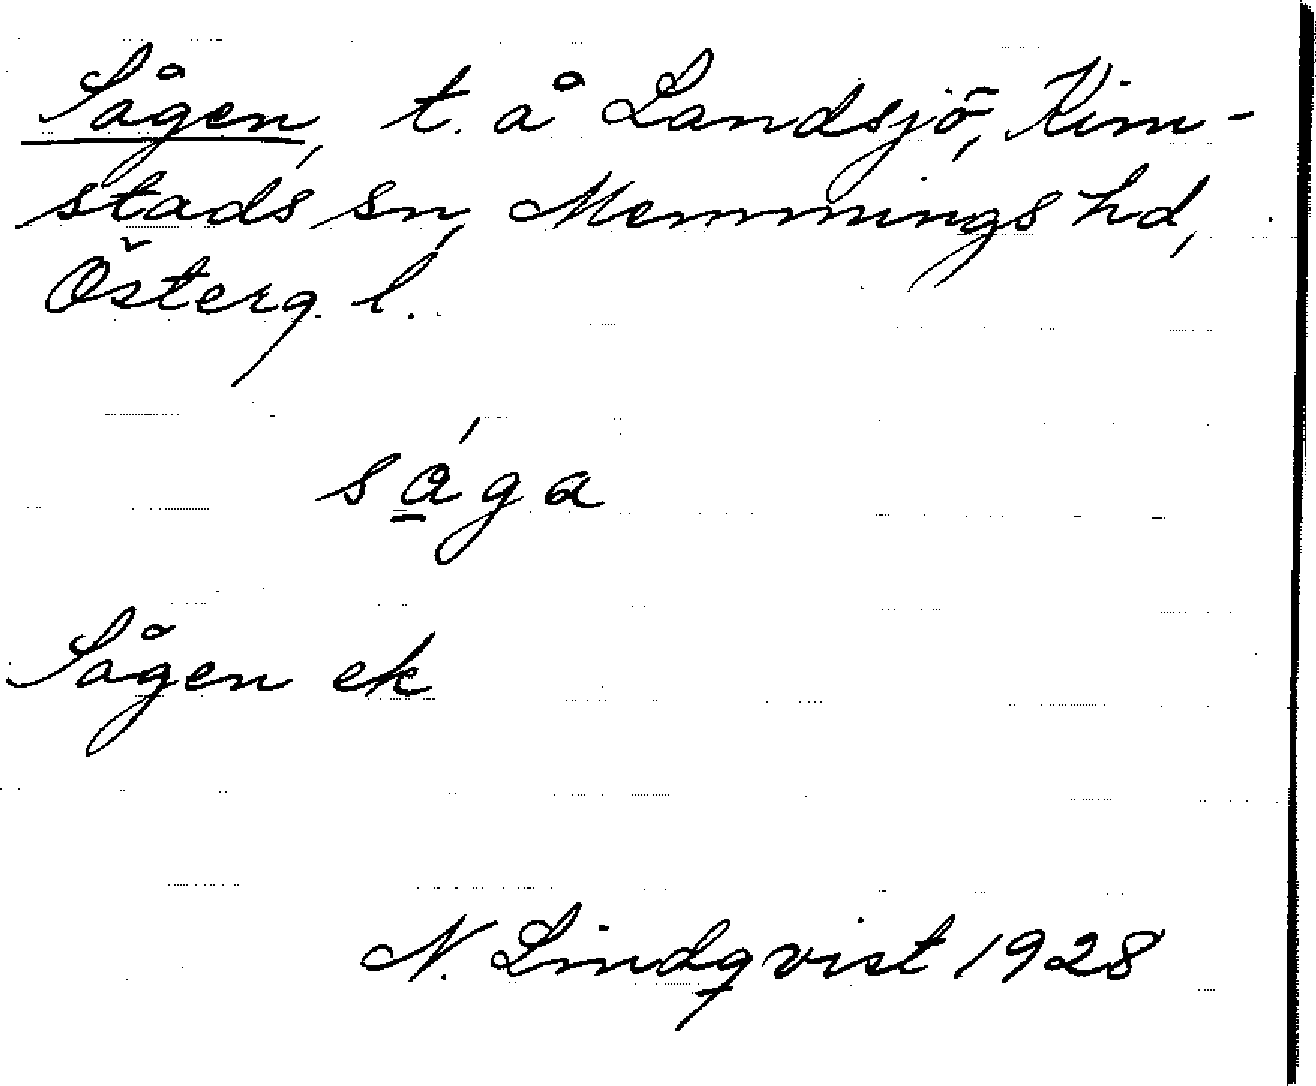 Sågen, t. å Landsjö, Kim-
stads sn, Memmings hd,
Österg. l.
sa̲´ga
Sågen ek
N. Lindqvist 1928